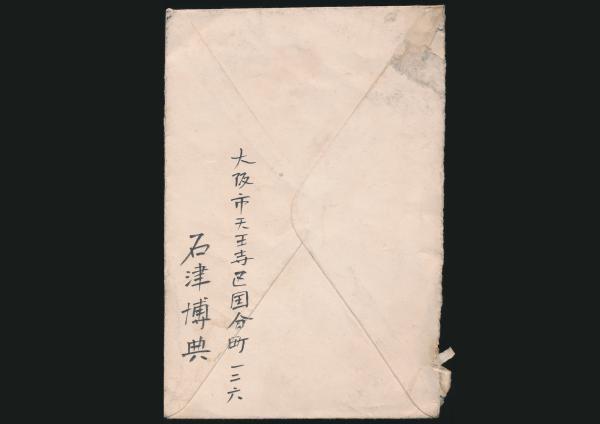 大阪市天王寺区国分町一三六
石津博典